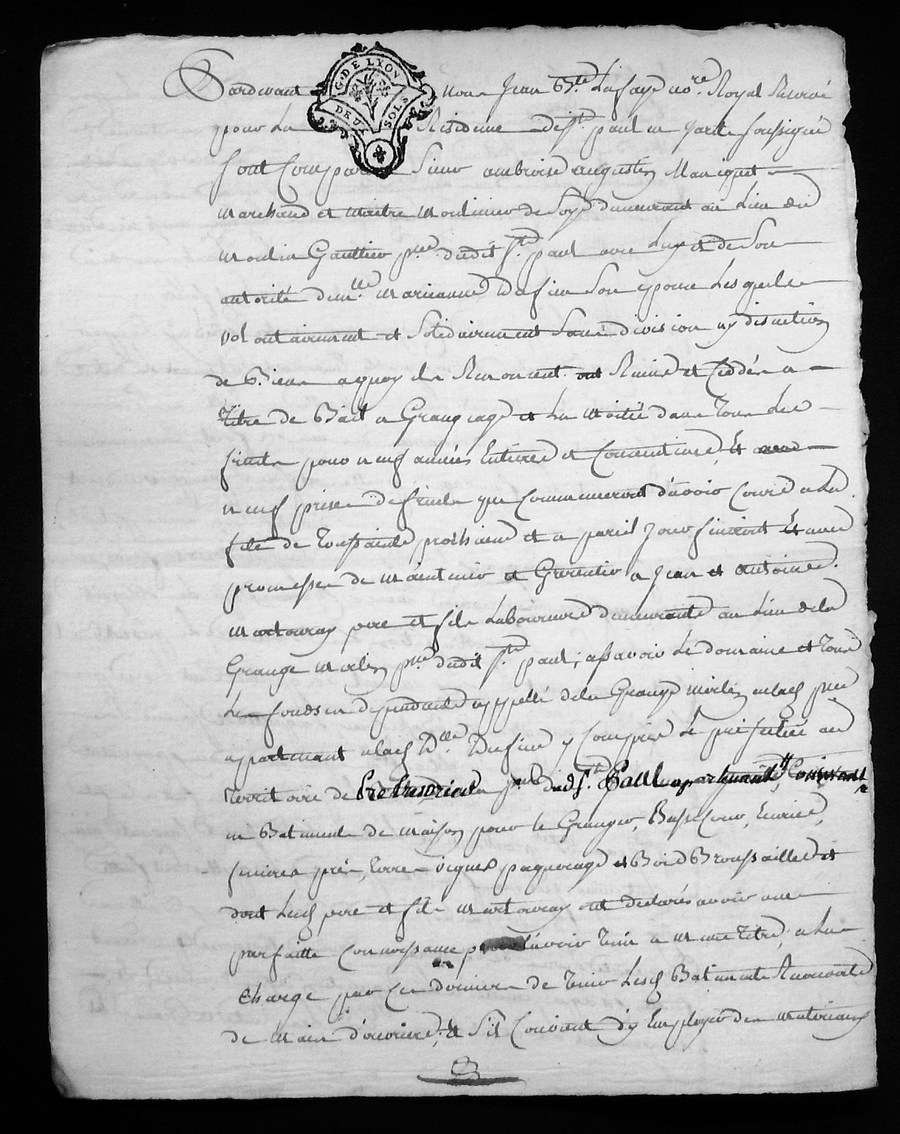 G. DE LYON
DEUX SOLS
Pardevant nous Jean Bte Lafay nore Royal Reservé
pour la Residence de st. paul en jarét soussigné
sont Comparu Sieur ambroise augustin
marchand et maitre moulinier de soye demeurant au Lieu du
moulin Gaultier psse dudit st. paul avec luy et de son
autorité demlle marianne Dufieu son epouse Lesquels
volontairement et solidairement sans division ny discution
de Biens aquoy ils Renoncent ont Remis et Ceddés a
titre de Bail a Grangeage et la moitié dans tous Les
fruits pour neuf années Entieres et Consécutives, Et
neuf prises de fruits qui Commenceront d'avoir Cours a la
fete de toussaints prochaine et a pareil jour finiront Et avec
promesse de maintenir et Garentir a jean et antoine
pere et fils Laboureurs demeurants au Lieu de la
Grange merlin psse dudit st. paul; assavoir Le domaine et tous
Les fonds en dependants appellé dela Grange merlin
apartenant alad. Dlle Dufieu y Compris Le
territoire de psse dud st. Paul apartenant Consistants
en Batiments de maison pour le Granger, Basse Cour, Ecuries,
fenieres pré, terre vignes paquerage et Bois Broussailles et
dont Lesd. pere et fils ont declarés avoir une
parfaitte Connoissance pour l'avoir tenu a meme titre, a la
Charge par Ces derniers de tenir Lesd. Batiments Recouverts
de main d'ouvriers, Et s'il Convient d'y Employer des materiaux